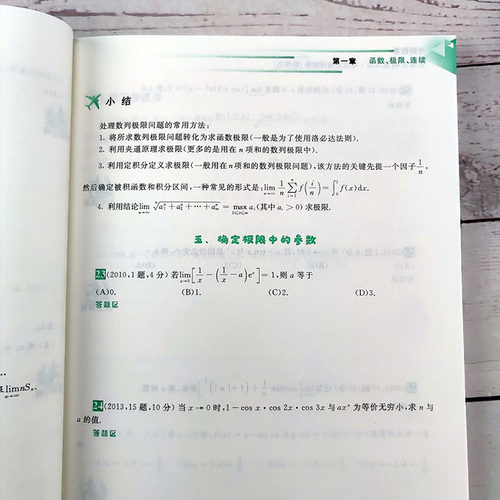 第一章 函数、极限、连续
小 结
处理数列极限问题的常用方法：
1. 将所求数列极限问题转化为求函数极限(一般是为了使用洛必达法则).
2. 利用夹逼原理求极限(更多的是用在 n 项和的数列极限中).
3. 利用定积分定义求极限(一般用在 n 项和的数列极限问题),该方法的关键先提一个因子 1/n,
然后确定被积函数和积分区间,一种常见的形式是:lim_{n→∞} 1/n ∑_{i=1}^{n} f(i/n) = ∫_0^1 f(x)dx.
4. 利用结论 lim_{n→∞} ⁿ√(a₁ⁿ + a₂ⁿ + ⋯ + aₘⁿ) = max_{1≤i≤m} aᵢ (其中 aᵢ > 0) 求极限.
五、确定极限中的参数
23 (2010,1题,4分) 若 lim_{x→0} [1/x − (1/x − a)eˣ] = 1,则 a 等于
(A)0. (B)1. (C)2. (D)3.
答题区
lim nSₙ.
n→∞
24 (2013,15题,10分) 当 x → 0 时,1 − cos x · cos 2x · cos 3x 与 axⁿ 为等价无穷小,求 n 与
a 的值.
答题区